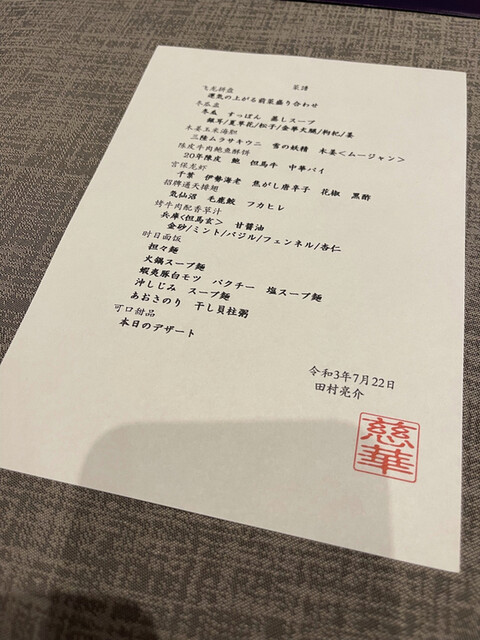 菜譜
飞龙拼盘
運気の上がる前菜盛り合わせ
冬瓜盅
冬瓜 すっぽん 蒸しスープ
銀耳/夏草花/松子/金華火腿/枸杞/姜
木姜玉米海胆
三陸ムラサキウニ 雪の妖精 木姜<ムージャン>
陈皮牛肉鲍鱼酥饼
20年陳皮 鮑 但馬牛 中華パイ
宫保龙虾
千葉 伊勢海老 焦がし唐辛子 花椒 黒酢
招牌通天排翅
気仙沼 毛鹿鮫 フカヒレ
烤牛肉配香草汁
兵庫<但馬玄> 甘醤油
金砂/ミント/バジル/フェンネル/杏仁
时日面饭
担々麺
火鍋スープ麺
蝦夷豚白モツ パクチー 塩スープ麺
沖しじみ スープ麺
あおさのり 干し貝柱粥
可口甜品
本日のデザート
令和3年7月22日
田村亮介
慈華